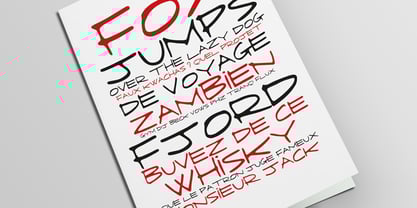 FOX
JUMPS
OVER THE LAZY DOG
FAUX KWACHAS ? QUEL PROJET
DE VOYAGE
ZAMBIEN
GYM DJ BECK VOWS PHZ TRANQ FLUX
FJORD
BUVEZ DE CE
WHISKY
QUE LE PATRON JUGE FAMEUX
MONSIEUR JACK